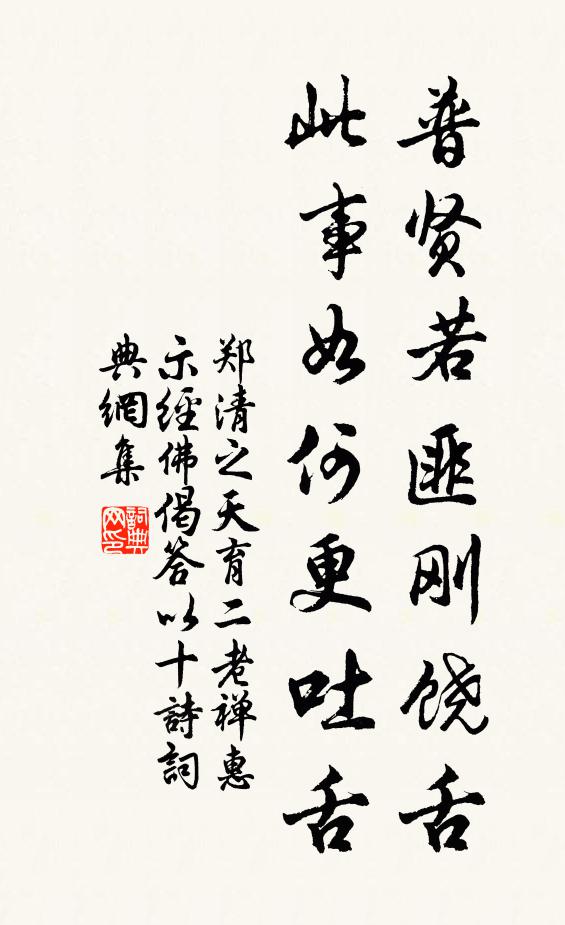 普贤若匪刚饶舌
此事如何更吐舌
郑清之天育二老禅惠
示經佛偈答以十詩詞
典網集
詞典网印